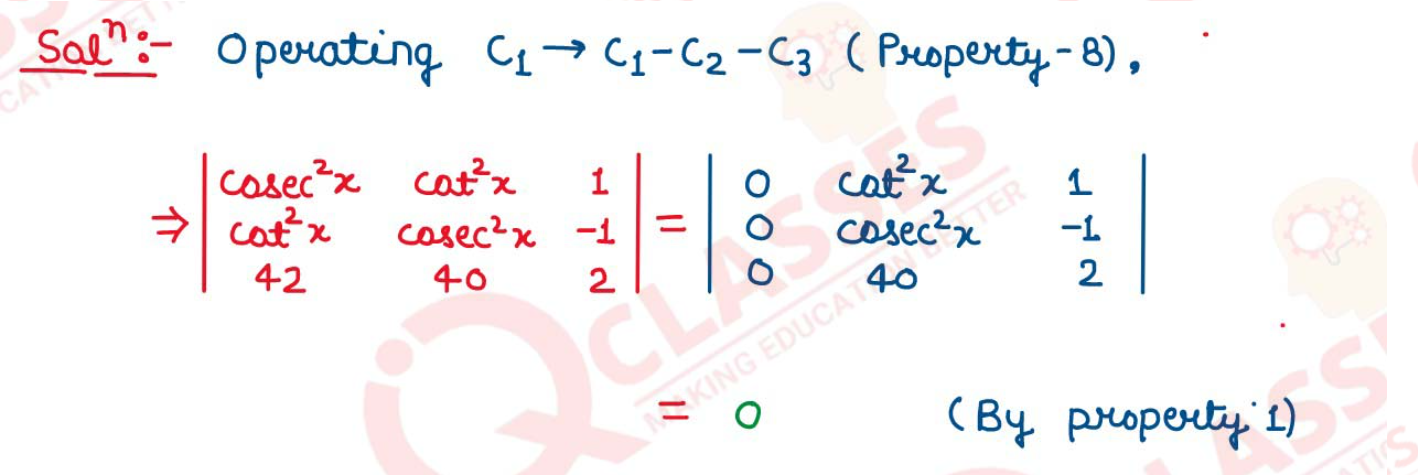 Solⁿ:- Operating C₁ → C₁-C₂-C₃ (Property-8),
⇒ | cosec²x cot²x 1 | = | 0 cot²x 1 |
| cot²x cosec²x -1 | | 0 cosec²x -1 |
| 42 40 2 | | 0 40 2 |
= 0 (By property 1)
QCLASSES
MAKING EDUCATION BETTER